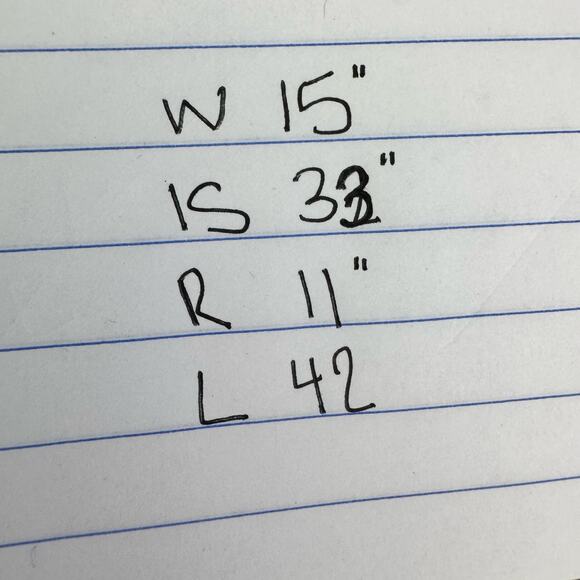 W 15"
IS
R 11"
L 42